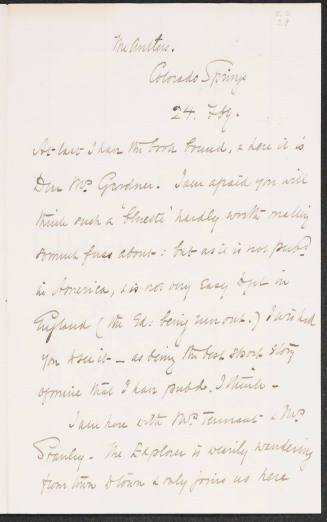 The Antlers.
Colorado Springs
24. Feby.
At last I have the book bound, & here it is
Dear Mrs Gardner. I am afraid you will
think such a "bluette" hardly worth making
so much fuss about: but as it is not pubd.
in America, & is not very easy to get in
England (the Ed: being run out.) I wished
you to see it – as being the best short story
of mine that I have pubd. I think –
I am here with Mrs Tennant & Mrs
Stanley – the Explorer is wearily wandering
from town to town & only joins us here